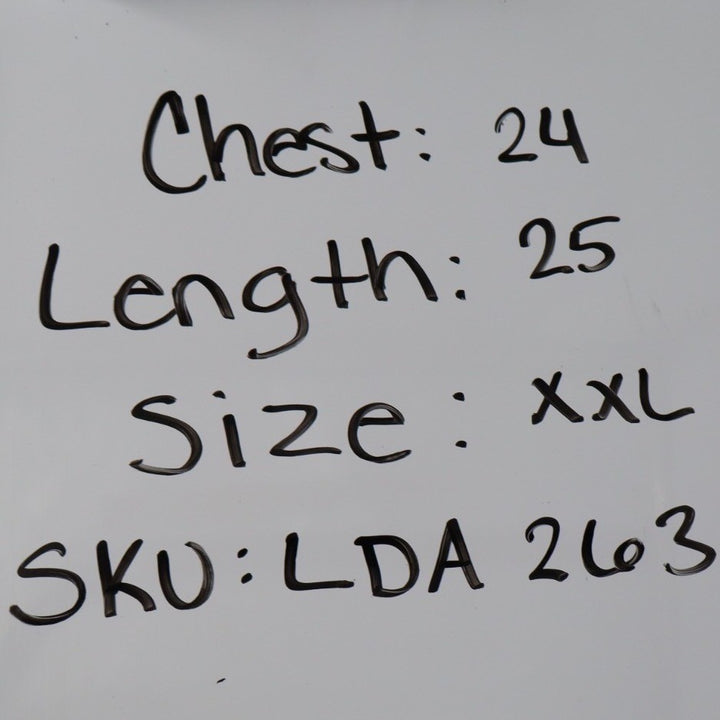 Chest: 24
Length: 25
Size: XXL
SKU: LDA 263